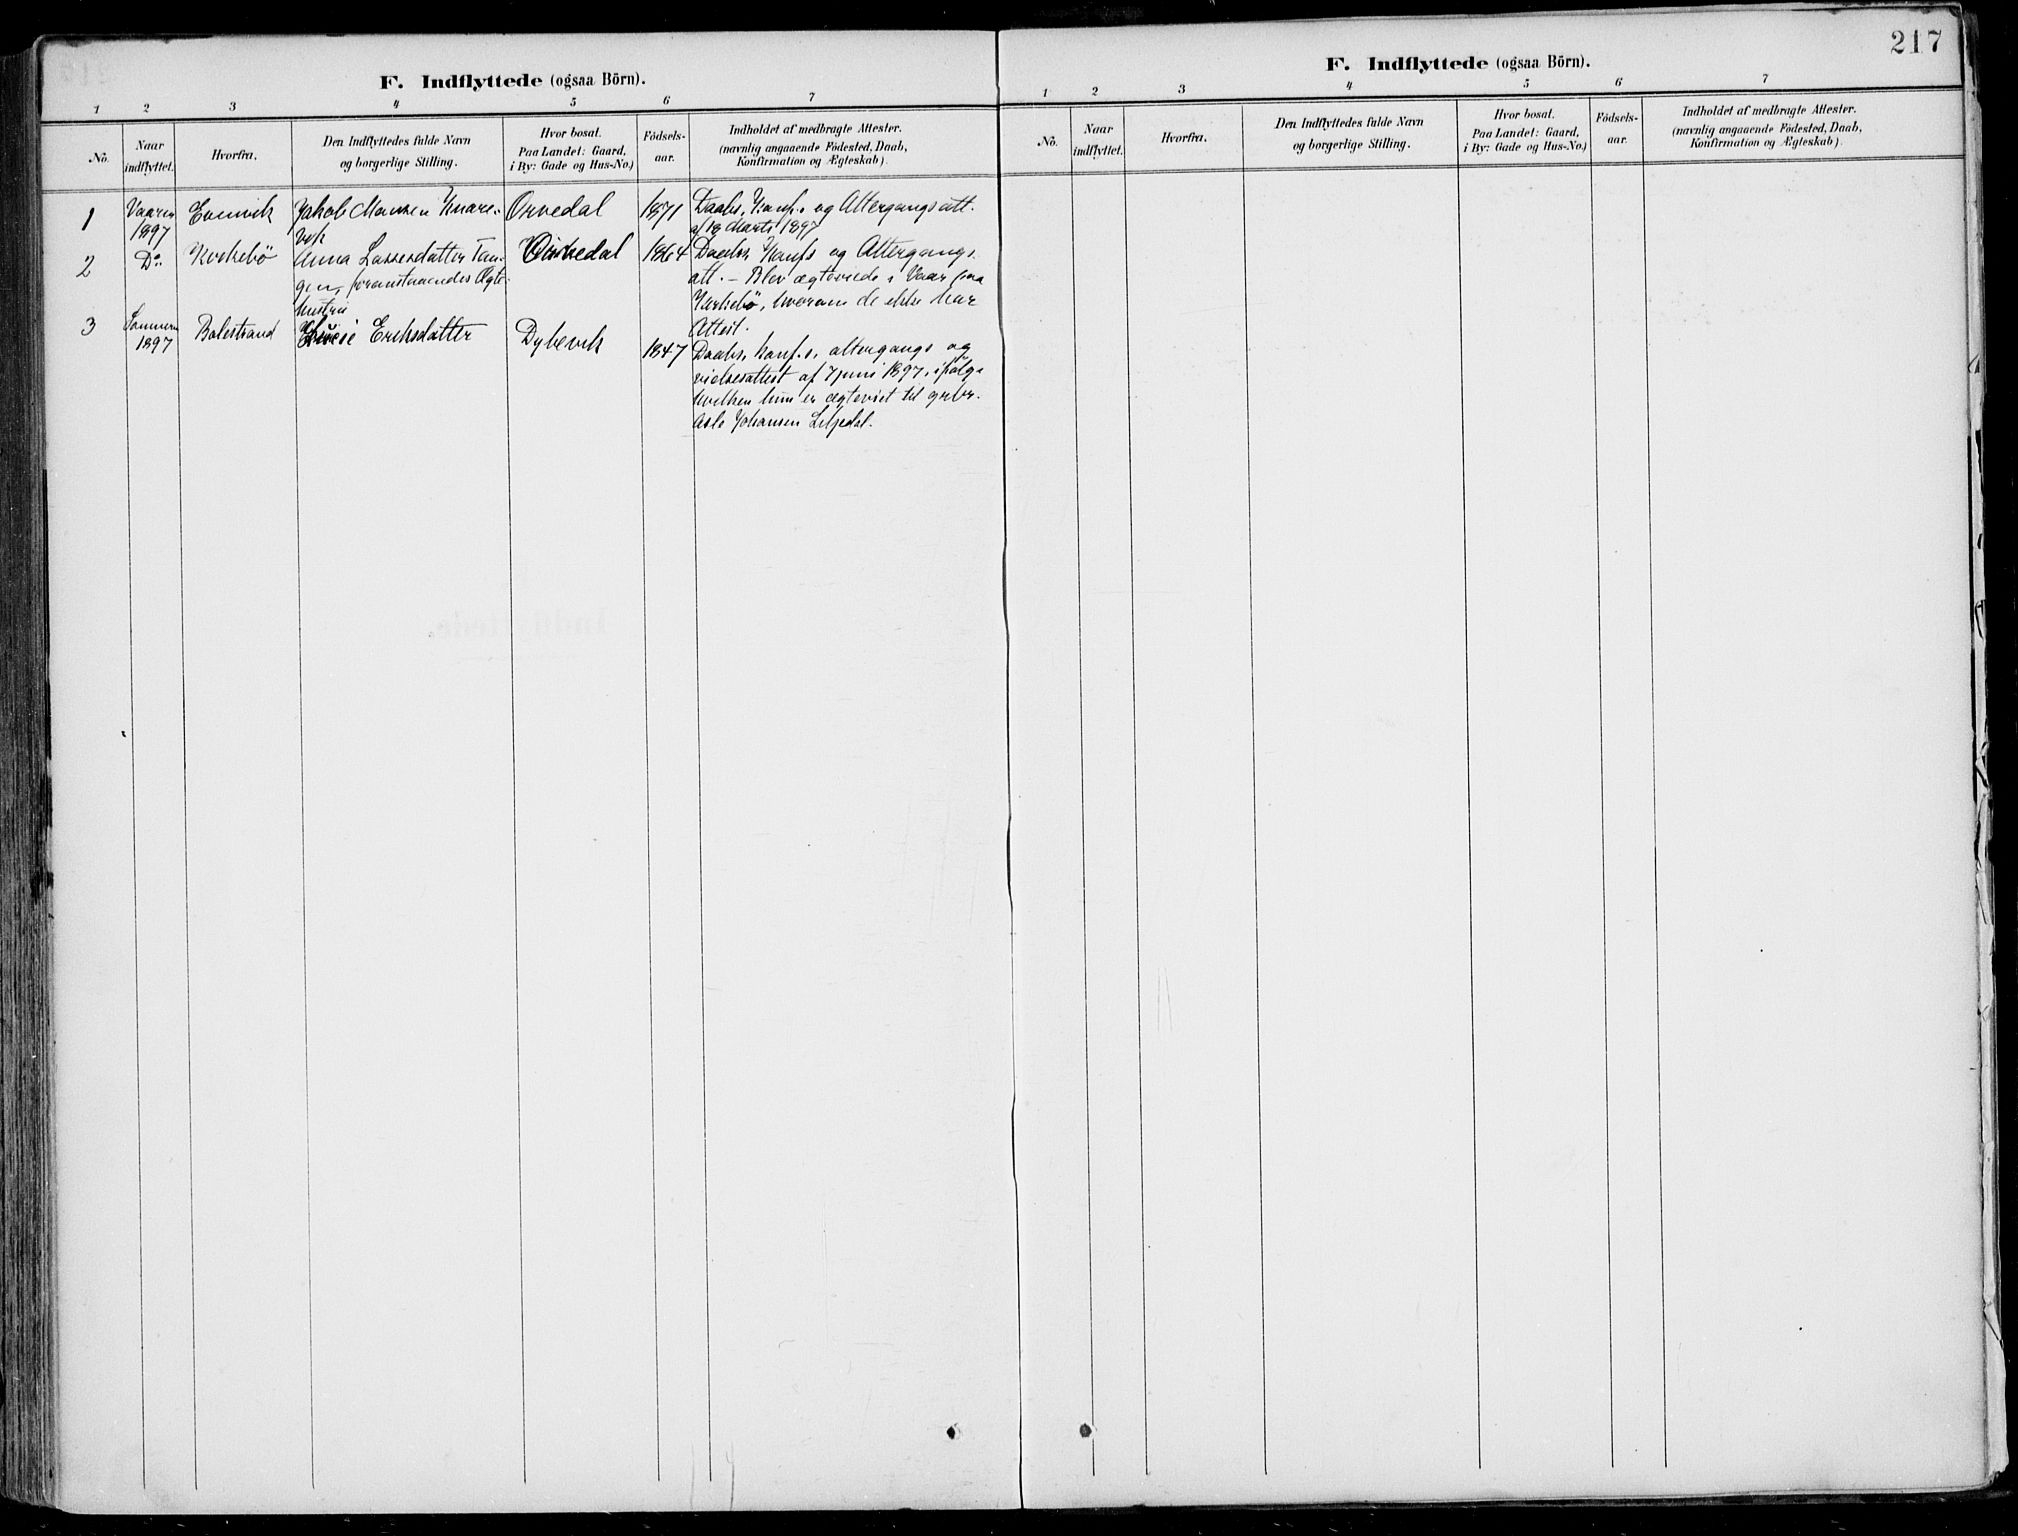 217
F. Indflyttede (ogsaa Börn).
1 2 3 4 5 6 7
No.
Naar
indflyttet.
Hvorfra.
Den Indflyttedes fulde Navn
og borgerlige Stilling.
Hvor bosat.
Paa Landet: Gaard,
i By: Gade og Hus-No.)
Födsels-
aar.
Indholdet af medbragte Attester.
(navnlig angaaende Födested, Daab,
Konfirmation og Ægteskab).
1
Vaaren
1897
Evenvik
Jakob Monsen Knare-
vik
Orvedal
1871
Daabs, Konf.s og Altergangsatt.
af 18 Marts 1897
2
Do
Kirkebø
Anna Lassesdatter Tan-
gen, foranstaaendes Ægte-
hustru
Orvedal
1864
Daabs, Konfs og Altergangs
att. - Blev ægteviede i Vaar paa
Kirkebø, hvorom de ikke har
Attest.
3
Sommeren
1897
Balestrand
Eriksdatter
Dybevik
1847
Daabs, Konf.s, altergangs og
vielsesattest af 7 juni 1897, ifølge
hvilken hun er ægteviet til grbr.
Asle Johansen Liljedal.
F. Indflyttede (ogsaa Börn).
1 2 3 4 5 6 7
No.
Naar
indflyttet.
Hvorfra.
Den Indflyttedes fulde Navn
og borgerlige Stilling.
Hvor bosat.
Paa Landet: Gaard,
i By: Gade og Hus-No.)
Födsels-
aar.
Indholdet af medbragte Attester.
(navnlig angaaende Födested, Daab,
Konfirmation og Ægteskab).